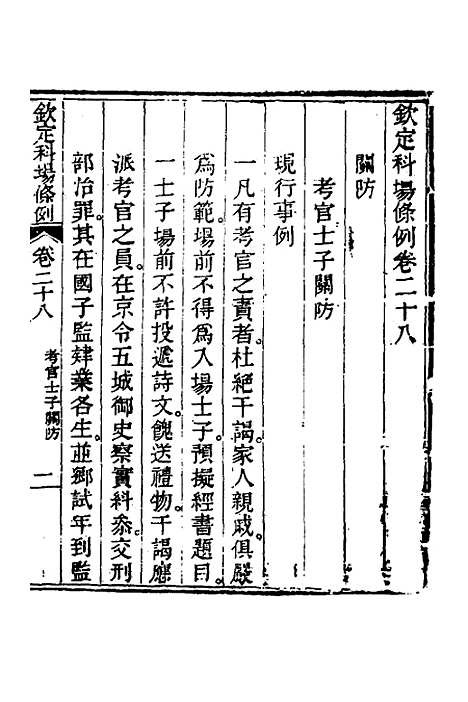 欽定科場條例卷二十八
關防
考官士子關防
現行事例
一凡有考官之責者杜絕干謁家人親戚俱嚴
爲防範場前不得爲入場士子預擬經書題目
一士子場前不許投遞詩文餽送禮物干謁應
派考官之員在京令五城御史察實科叅交刑
部治罪其在國子監肄業各生並鄉試年到監
欽定科場條例
卷二十八
考官士子關防
一